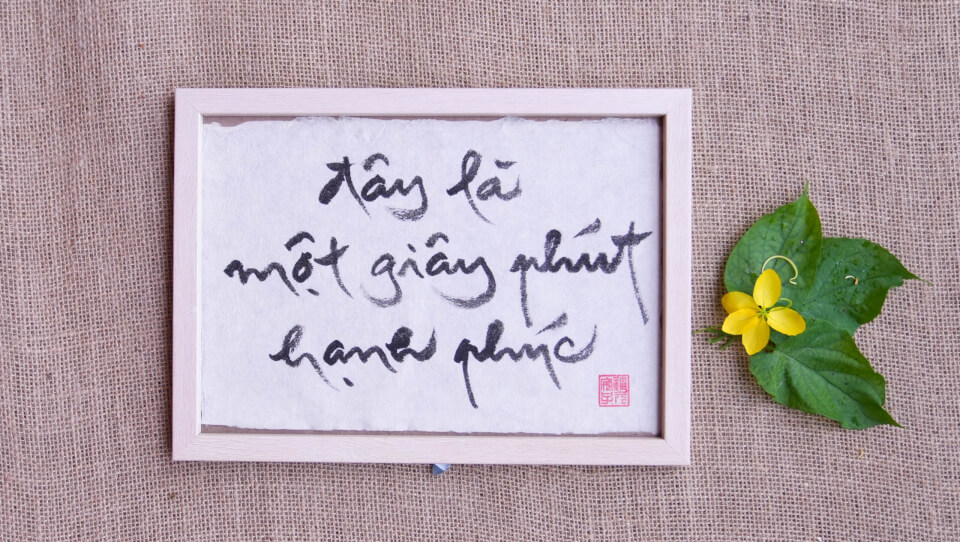 đây là
một giây phút
hạnh phúc